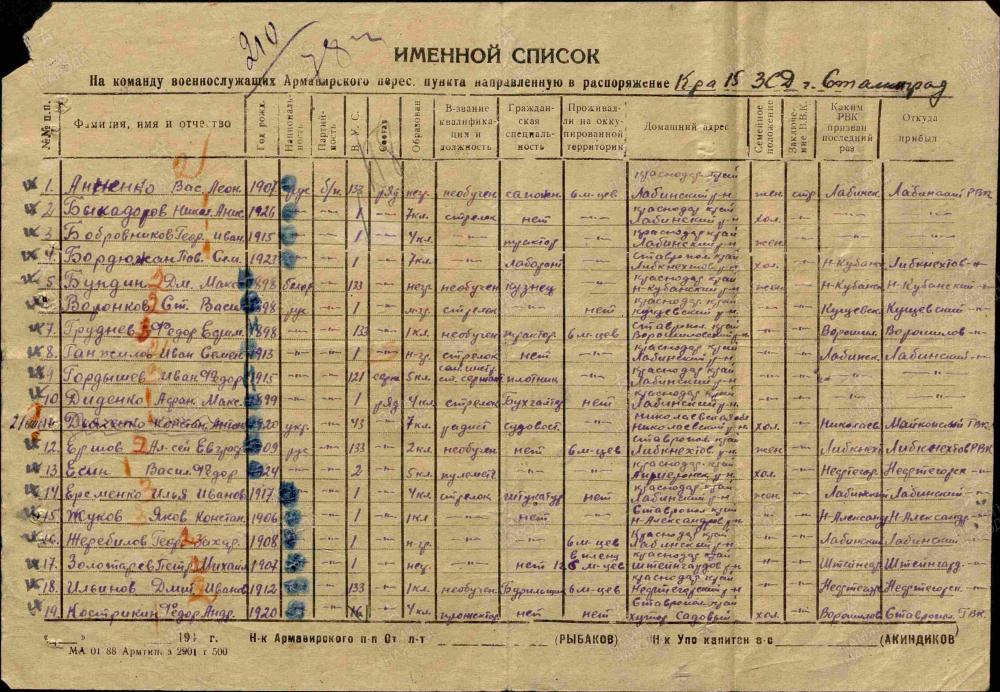 210
78
ИМЕННОЙ СПИСОК
На команду военнослужащих Армавирского перес. пункта направленную в распоряжение К-ра 15 ЗСД г. Сталинград
№№ п.п. Фамилия, имя и отчество Год рожд. Национальность Партийность В.У.С. Состав Образован В-звание квалификация и должность Гражданская специальность Проживали на оккупированной территории Домашний адрес Семейное положение Заключение В.В.К. Каким РВК призван последний раз Откуда прибыл
1. Анненко Вас. Леон. 1907 рус б/п 133 ряд нег. необучен сапожн. 6 м-цев Краснодар. край Лабинский р-н жен стр Лабинск Лабинский РВК
2 Быкадоров Никол. Аник. 1926 -"- 1 -"- 7кл. стрелок нет -"- Краснодар край Лабинский р-н хол. -"- -"- -"-
3 Бобровников Геор. Иван. 1915 -"- 1 -"- 4кл. -"- трактор -"- Краснодар край Лабинский р-н жен -"- -"- -"-
4. Бордюжан Пав. Сем. 1923 -"- 1 -"- 7кл. -"- лаборант -"- Ставропол. край Либкнехтов. р-н хол. -"- Н-Кубанс Либкнехтов -"-
5 Бундин Дм. Макс 1898 белор -"- 133 -"- негр. необучен кузнец -"- Краснодар край Н-Кубанский р-н жен. -"- Н-Кубанс Н-Кубанский -"-
Воронков Ст. Васи 1898 рус -"- 1 -"- н-гр. стрелок -"- нет Краснодар край Кущевский р-н -"- -"- Кущевск Кущевский -"-
7. Груднев Федор Ефим. 1898 -"- -"- 133 -"- 1кл. необучен трактор 6 м-цев Ставропол. край Ворошиловский р-н -"- -"- Ворошил. Ворошилов -"-
8. Ганжилов Иван Семен 1913 -"- -"- 1 -"- н-гр. стрелок нет -"- Краснодар край Лабинский р-н -"- -"- Лабинск Лабинский -"-
9 Гордышев Иван Федор 1915 -"- -"- 121 серж 5кл. ст. сержант плотник -"- Краснодар край Лабинский р-н -"- -"- -"- -"-
10 Диденко Афан. Макс. 1899 -"- -"- 1 ряд 4кл. стрелок Бухгалтер нет Краснодар край Лабинский р-н -"- -"- -"- -"-
Дьяченко Констан. Антон 1920 укр. -"- 43 -"- 7кл. радист судовост. -"- Николаевский р-н хол. -"- Николаев Майкопский ГВК
12. Ершов Ал-сей Евграф 1909 рус -"- 133 -"- 2кл. необучен нет 6 м-цев Ставропол. край Либкнехтов. р-н жен -"- Либкнехт Либкнехтов РВК
13 Есин Васил. Федор 1924 -"- -"- 2 -"- 5кл. пулеметч -"- -"- Краснодар. край Апшеронск р-н хол. -"- Нефтегор. Нефтегорск -"-
14 Еременко Илья Иванов 1917 -"- 1 -"- 4кл стрелок штукатур нет Краснодар край Лабинский р-н жен. -"- Лабинский Лабинский -"-
15 Жуков Яков Констан. 1906 -"- 1 -"- 1кл -"- нет -"- Ставропол край Н-Александров р-н -"- -"- Н-Александ. Н-Александр. -"-
16. Жеребилов Геор. Захар. 1908 -"- 1 -"- н-гр. -"- -"- 6 м-цев Краснодар. край Лабинский р-н -"- -"- Лабински Лабинский -"-
17. Золотарев Петр Михайл 1907 -"- 1 -"- нег. -"- нет в плену 12,5 м-цев Краснодар край Штейнгардов р-н -"- -"- Штейнгар. Штейнгард. -"-
18. Ильинов Дмит. Иванов 1912 -"- 133 -"- 1кл. необучен Бурильщик 6 м-цев Краснодар край Нефтегорский р-н -"- -"- Нефтегор Нефтегорск. -"-
19. Кострикин Федор Андр. 1920 -"- -"- 4кл прожектор нет нет Ставропол край хутор Садовый хол. -"- Ворошилов Ставропол. ГВК.
"___" 194 г. Н-к Армавирского п-п Ст л-т (РЫБАКОВ) Н-к Упо капитан а-с (АКИНДИКОВ)
МА 01 88 Армтип. з 2901 т 500